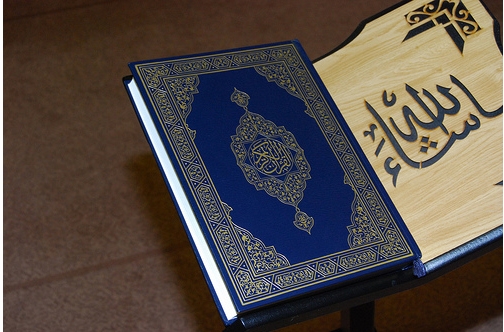 القرآن الكريم
ما شاء الله